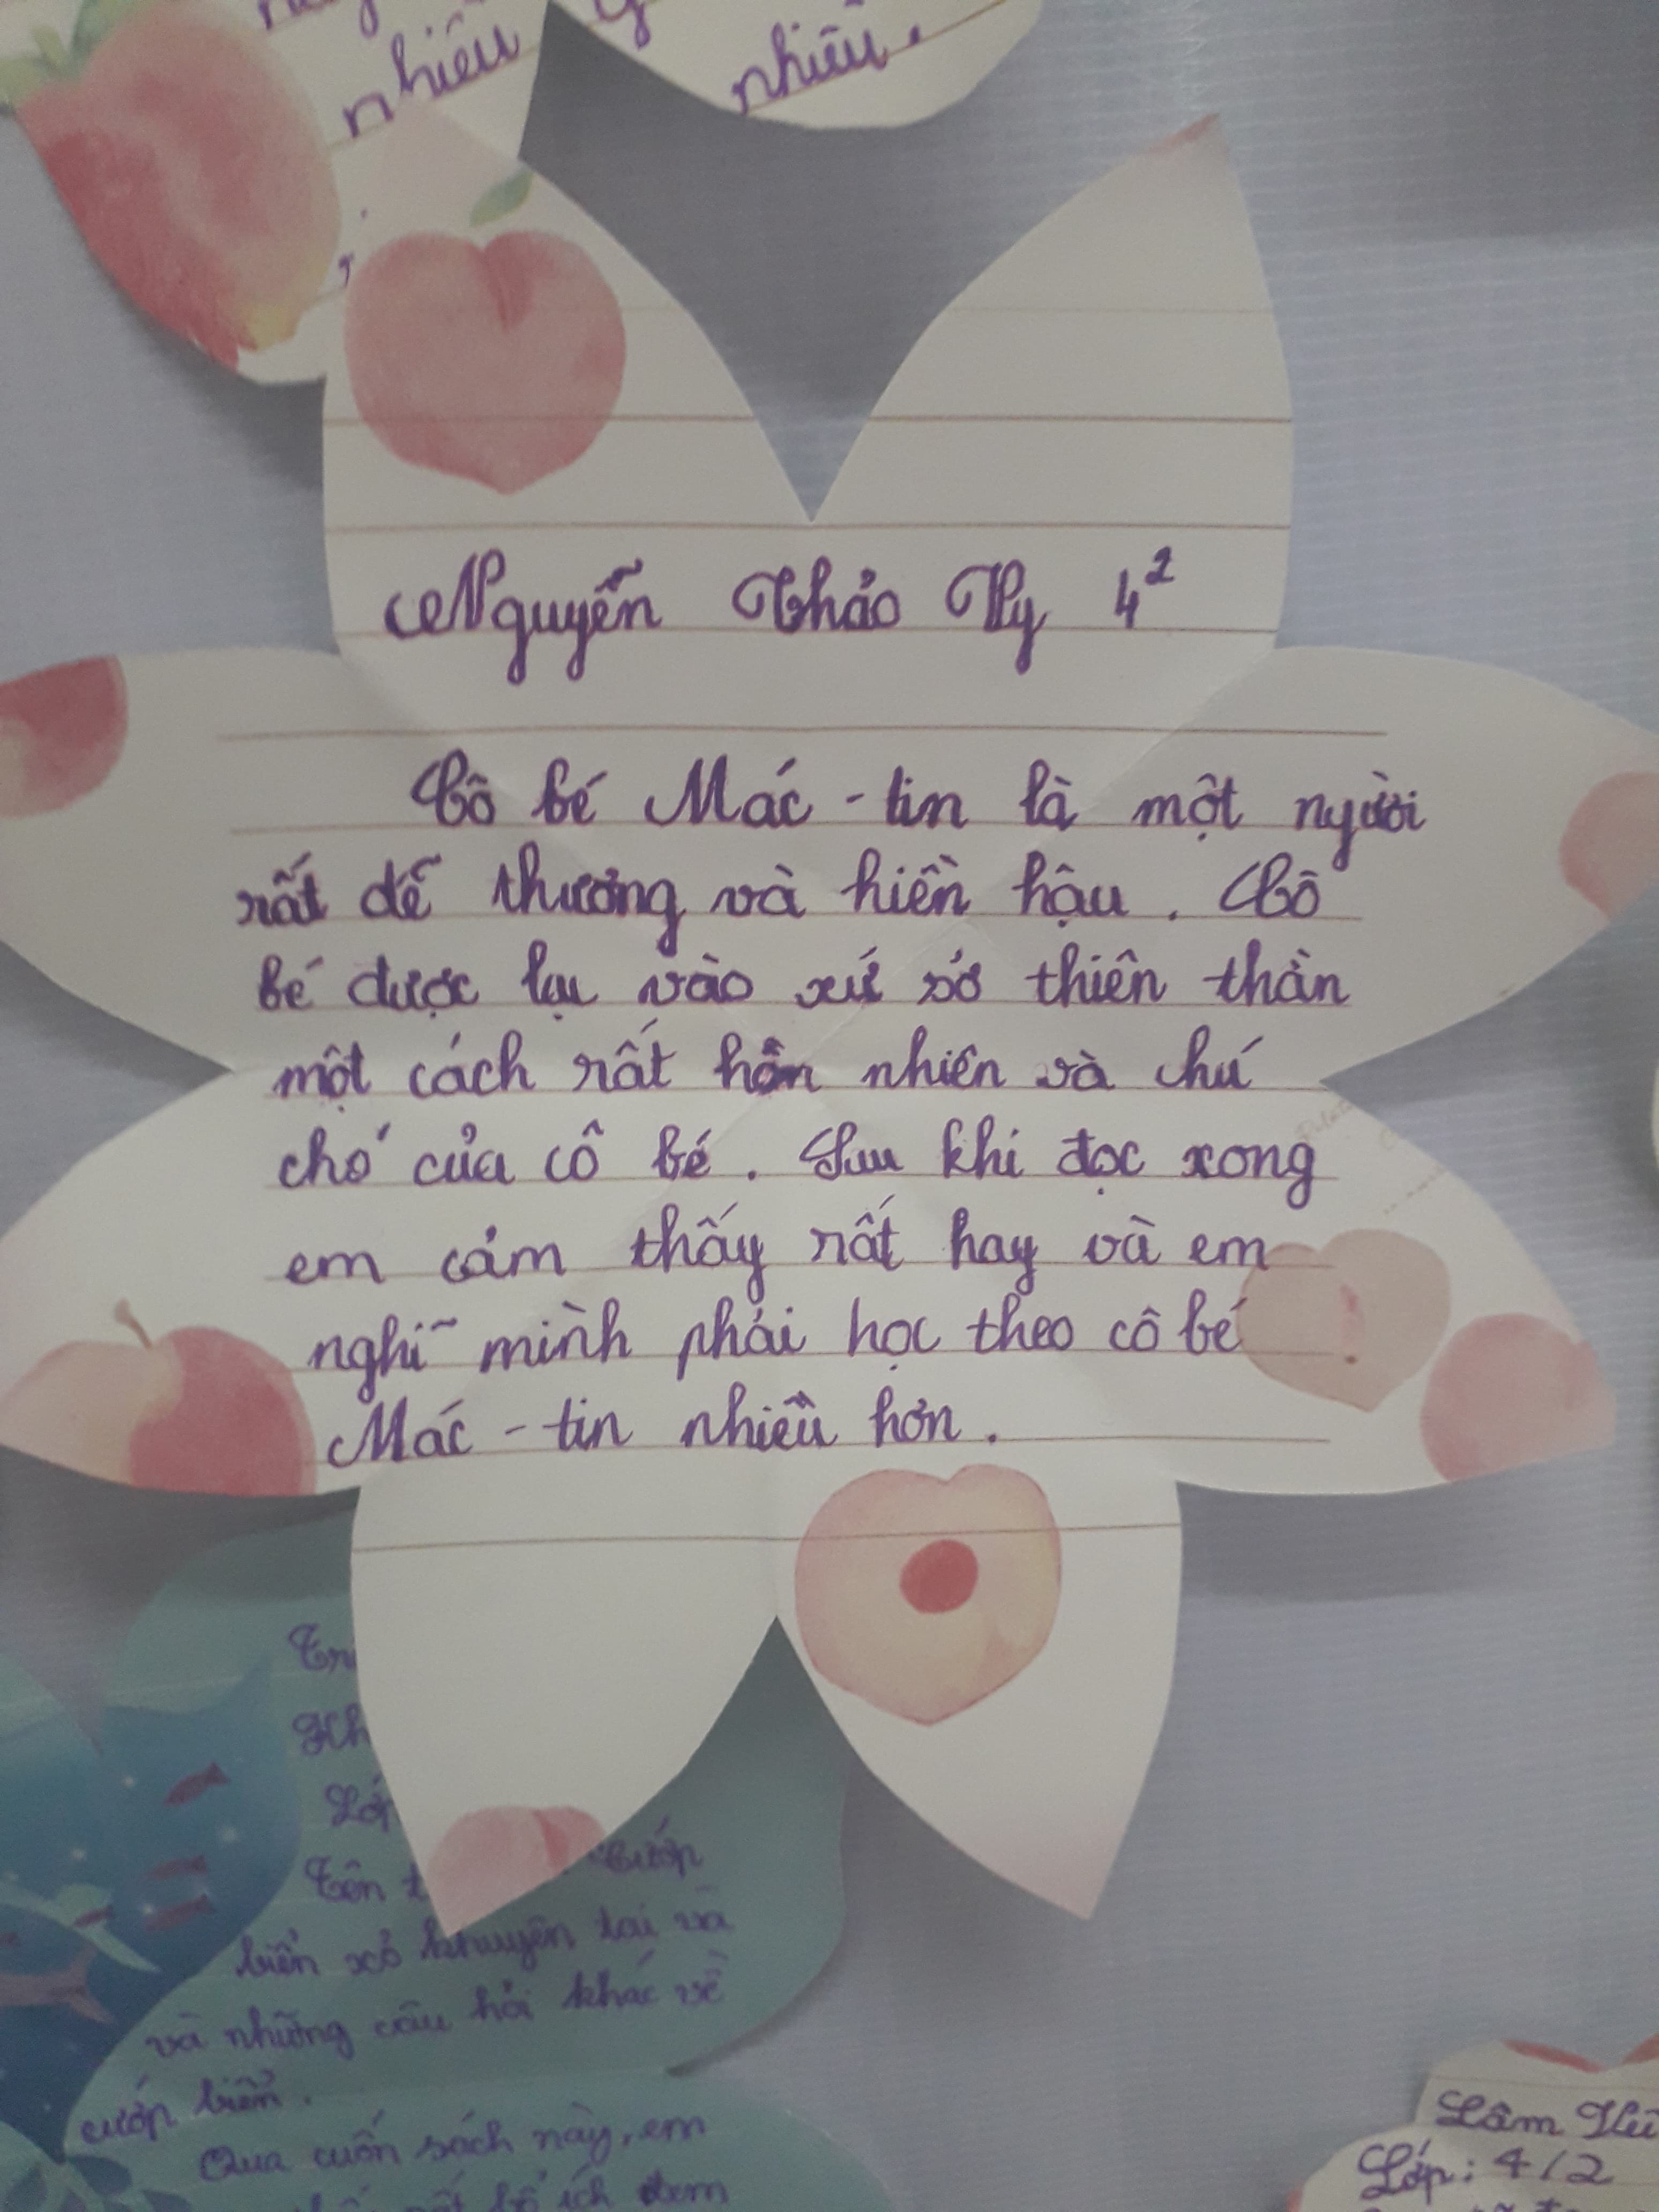 nhiều
nhiều.
Nguyễn Thảo Vy 4²
Cô bé Mác - tin là một người
rất dễ thương và hiền hậu. Cô
bé được lạc vào xứ sở thiên thần
một cách rất hồn nhiên và chú
chó của cô bé. Sau khi đọc xong
em cảm thấy rất hay và em
nghĩ mình phải học theo cô bé
Mác - tin nhiều hơn.
Tên
cướp
biển xỏ khuyên tai và
và những câu hỏi khác về
cướp biển.
Qua cuốn sách này, em
Lâm
Lớp: 4/2